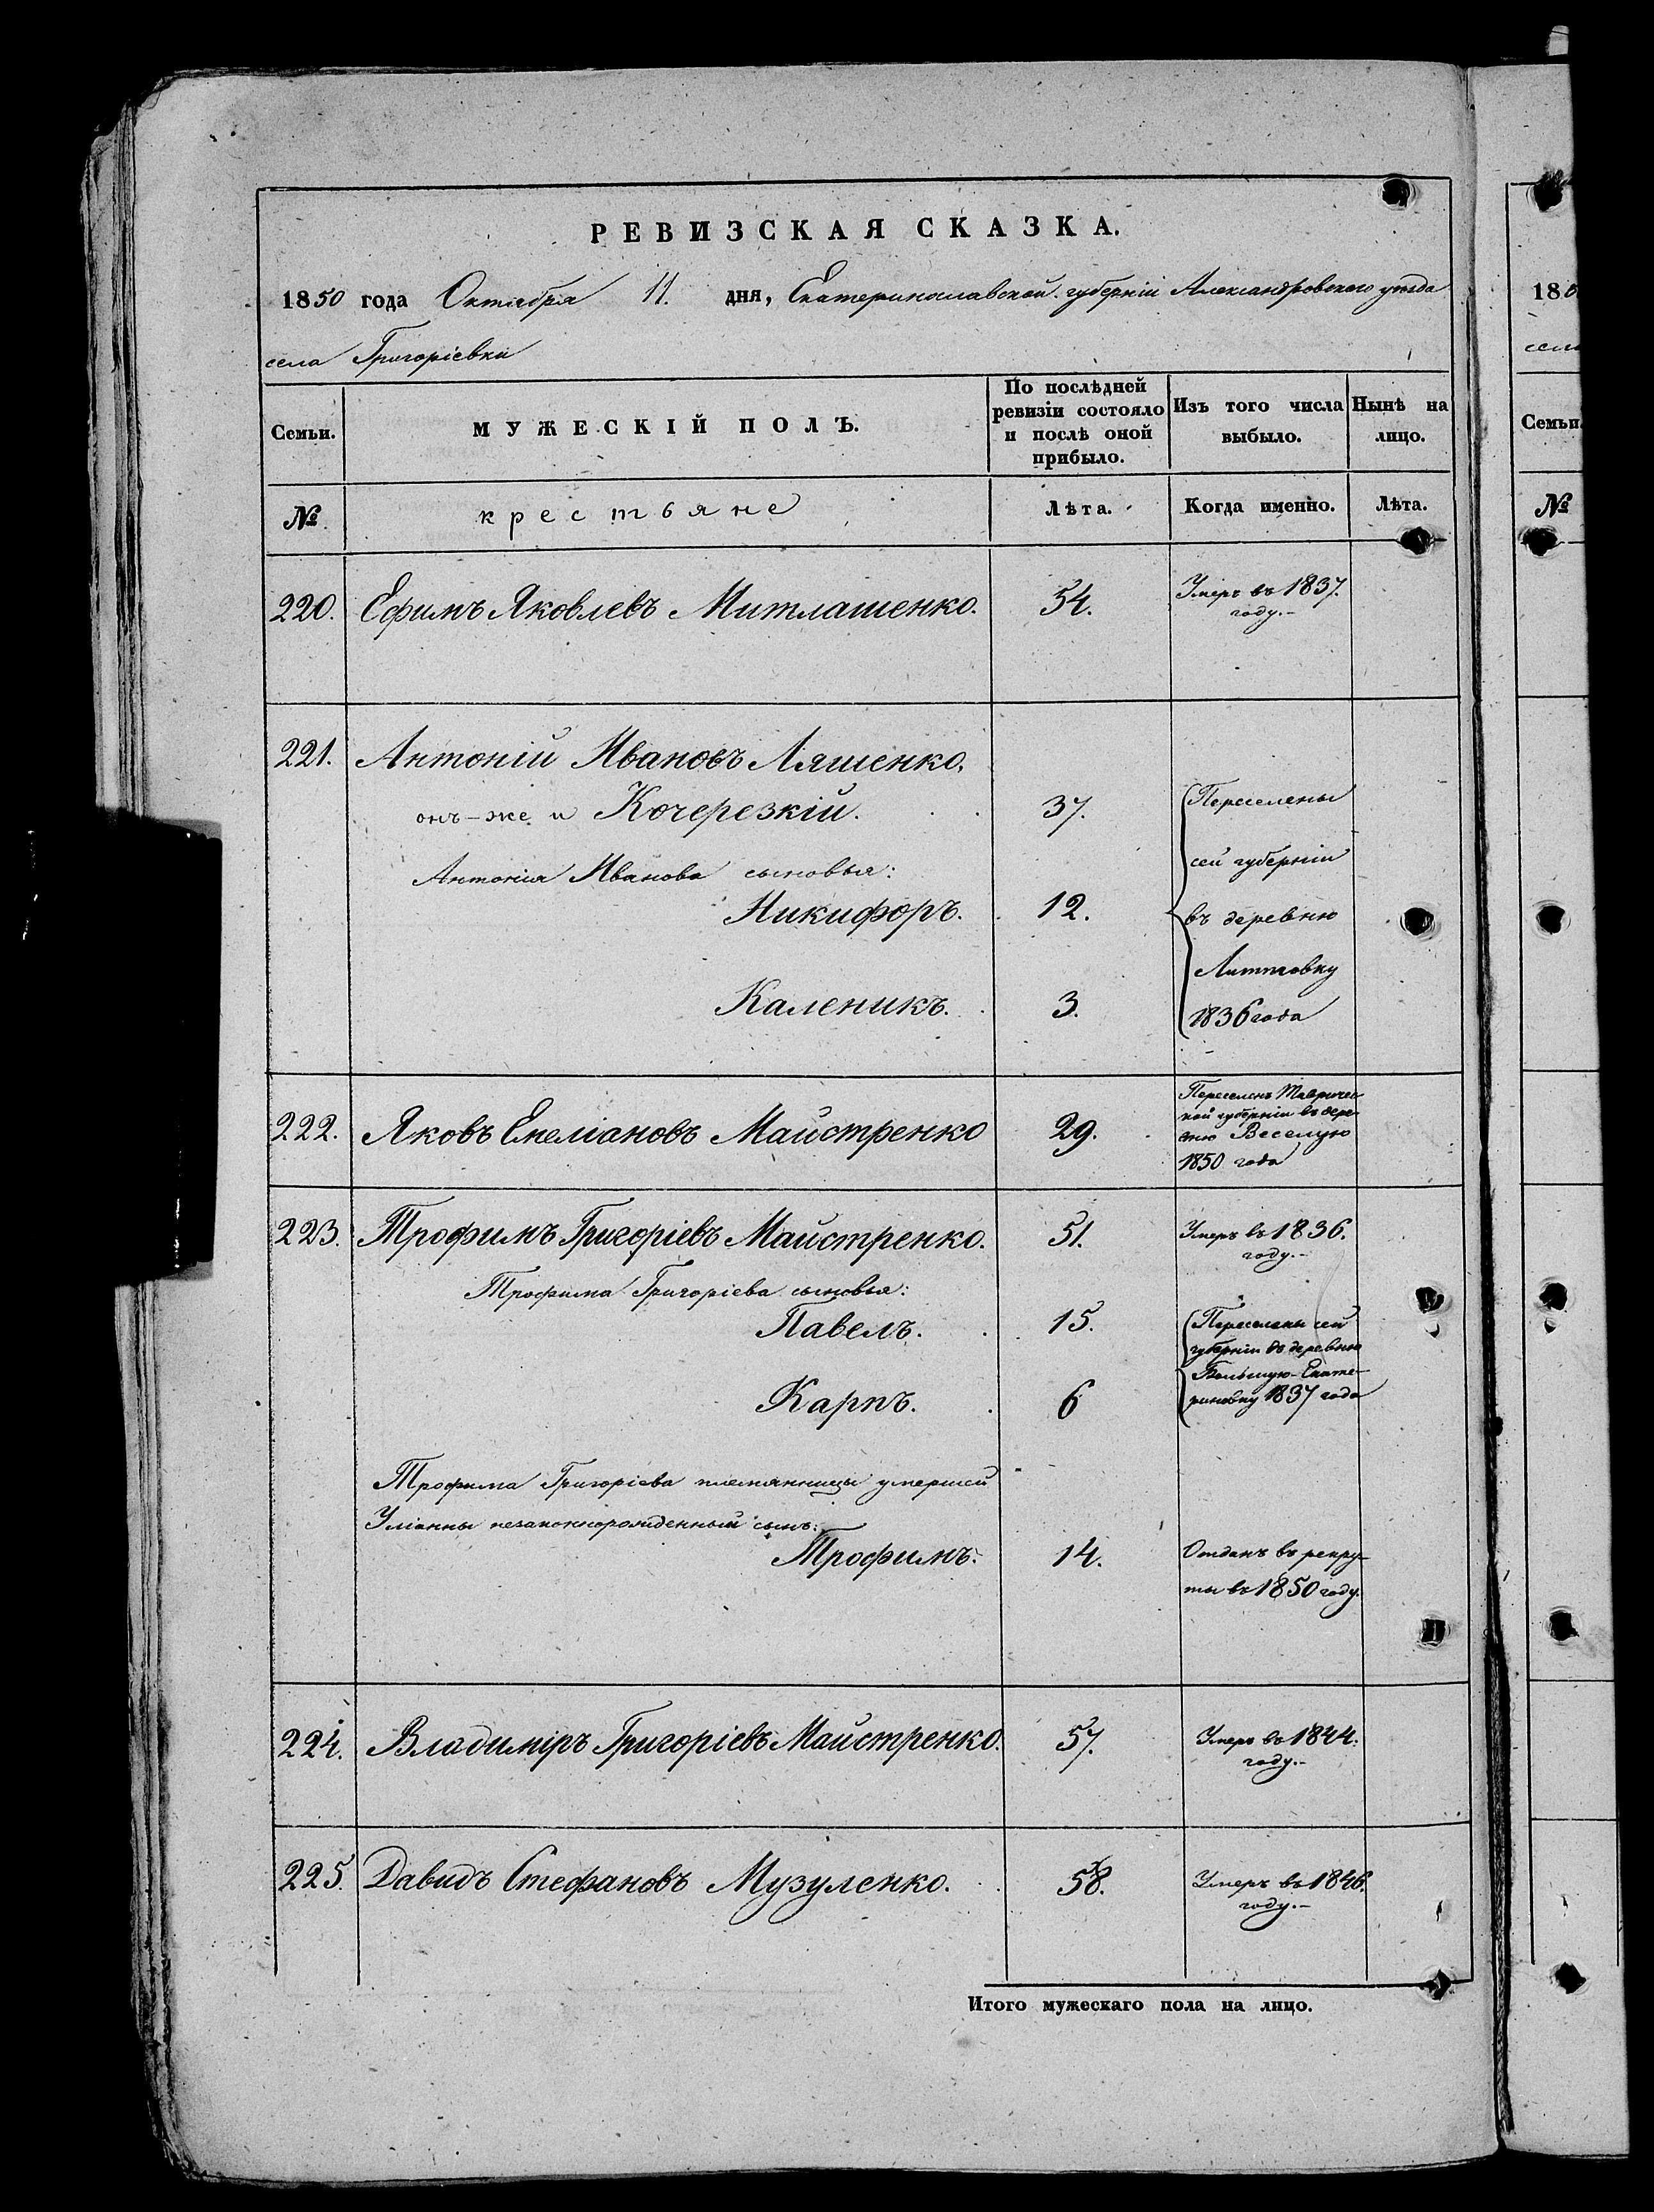 РЕВИЗСКАЯ СКАЗКА.
1850 года Октября 11. дня, Екатеринославской губерніи Александровского уезда
села Григоріевки
Семьи. МУЖЕСКІЙ ПОЛЪ. По послѣдней ревизіи состояло и послѣ оной прибыло. Изъ того числа выбыло. Нынѣ на лицо.
№ крестьяне Лѣта. Когда именно. Лѣта.
220. Ефимъ Яковлевъ Митлашенко. 54. Умеръ въ 1837.
году.-
221. Антоній Ивановъ Ляшенко,
онъ-же и Кочерезкій. 37. Переселены
сей губерніи
Антонія Иванова сыновья:
Никифоръ. 12. въ деревню
Каленикъ. 3.
1836 года
222. Яковъ Емеліановъ Майстренко 29. Переселенъ Тавричес
кой губерніи въ дере
вню Веселую
1850 года
223. Трофимъ Григоріевъ Майстренко. 51. Умеръ въ 1836.
году.-
Трофима Григоріева сыновья:
Павелъ. 15. Переселены сей
губерніи въ деревню
Карпъ. 6 Большую-Екате-
риновку 1837 года
Трофима Григоріева племянницы умершей
Уліанны незаконнорожденный сынъ:
Трофимъ. 14. Отданъ въ рекру-
ты въ 1850 году.
224. Владиміръ Григоріевъ Майстренко. 57. Умеръ въ 1844.
году.-
225. Давидъ Стефановъ Музуленко. 58. Умеръ въ 1846.
году.-
Итого мужескаго пола на лицо.
180
село
Семьи.
№